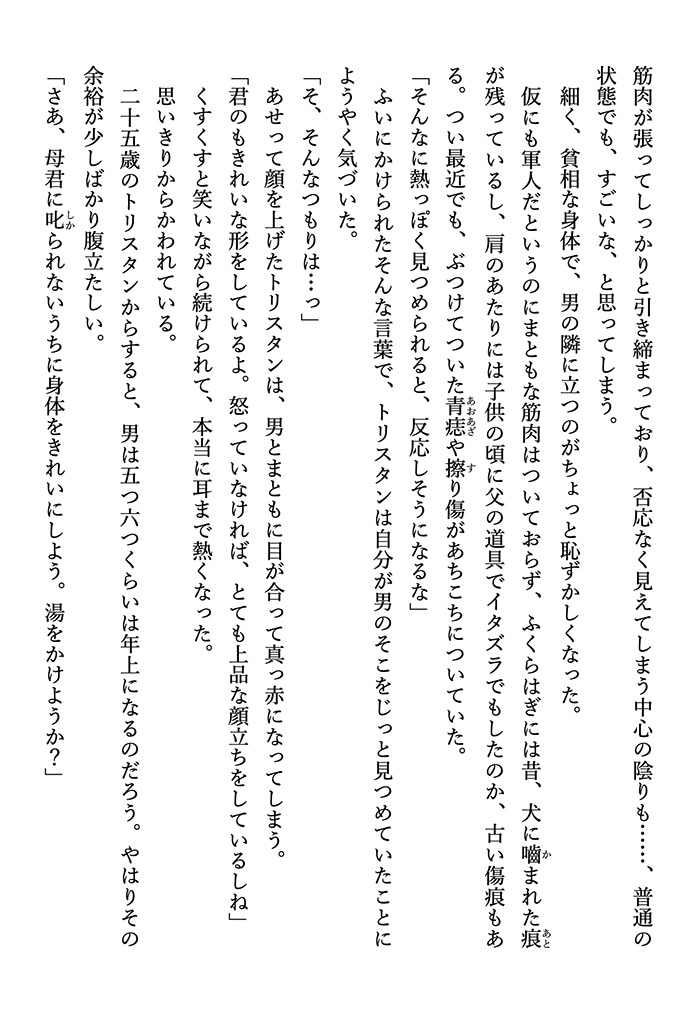 筋肉が張ってしっかりと引き締まっており、否応なく見えてしまう中心の陰りも……、普通の
状態でも、すごいな、と思ってしまう。
細く、貧相な身体で、男の隣に立つのがちょっと恥ずかしくなった。
仮にも軍人だというのにまともな筋肉はついておらず、ふくらはぎには昔、犬に嚙まれた痕
が残っているし、肩のあたりには子供の頃に父の道具でイタズラでもしたのか、古い傷痕もあ
る。つい最近でも、ぶつけてついた青痣や擦り傷があちこちについていた。
「そんなに熱っぽく見つめられると、反応しそうになるな」
ふいにかけられたそんな言葉で、トリスタンは自分が男のそこをじっと見つめていたことに
ようやく気づいた。
「そ、そんなつもりは…っ」
あせって顔を上げたトリスタンは、男とまともに目が合って真っ赤になってしまう。
「君のもきれいな形をしているよ。怒っていなければ、とても上品な顔立ちをしているしね」
くすくすと笑いながら続けられて、本当に耳まで熱くなった。
思いきりからかわれている。
二十五歳のトリスタンからすると、男は五つ六つくらいは年上になるのだろう。やはりその
余裕が少しばかり腹立たしい。
「さあ、母君に叱られないうちに身体をきれいにしよう。湯をかけようか？」